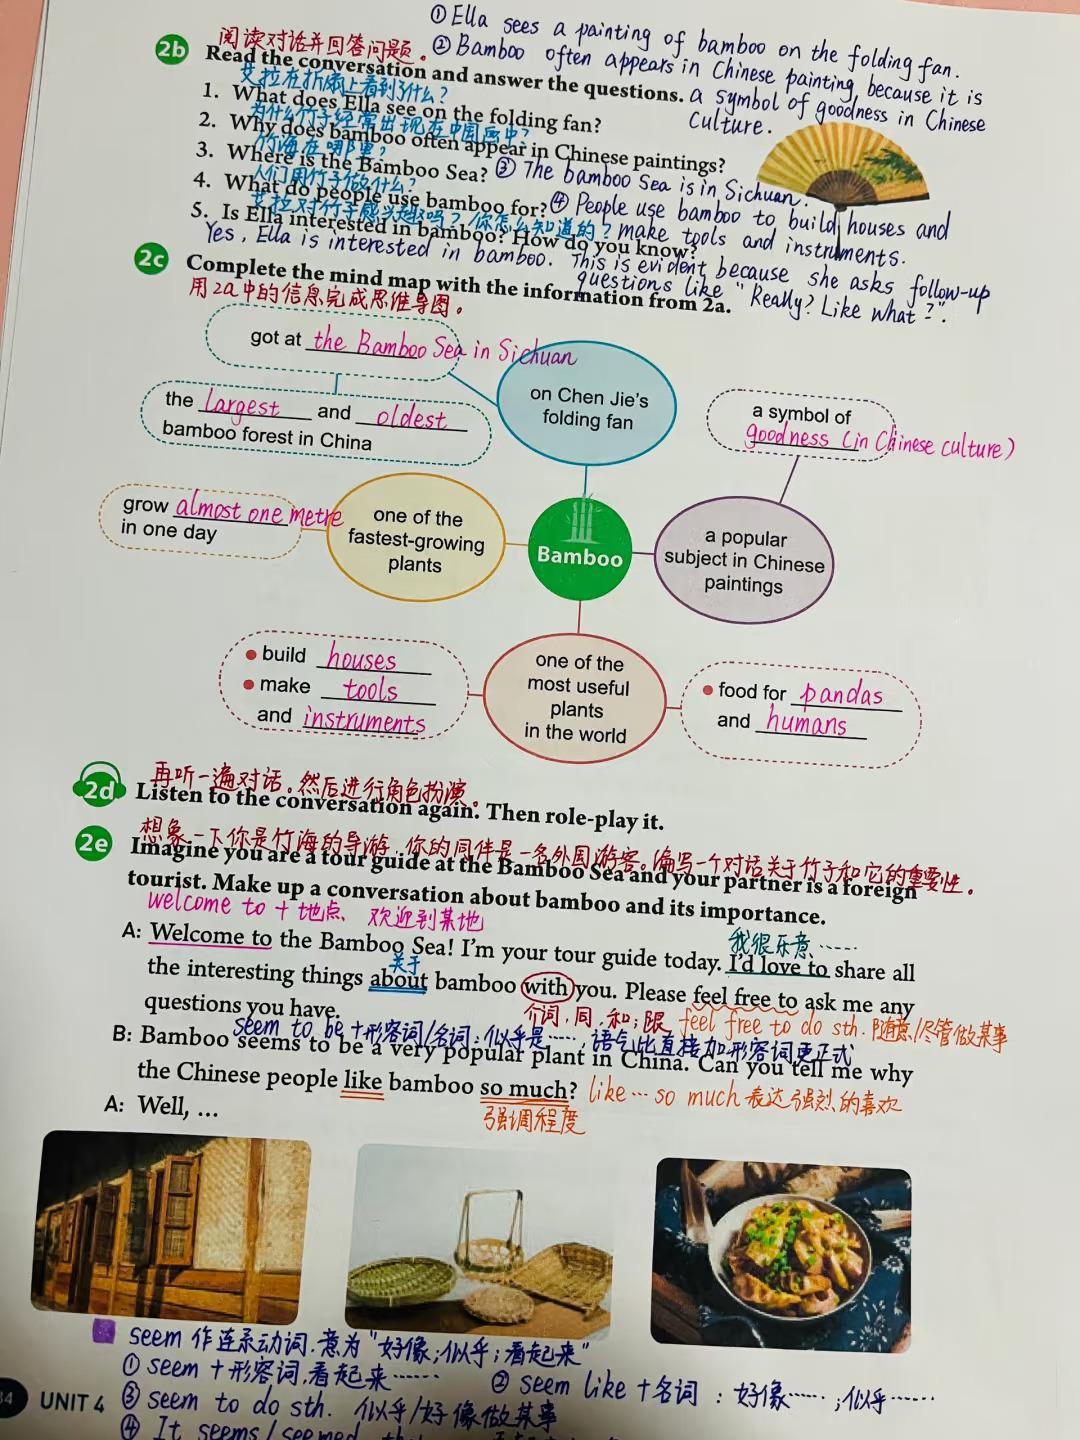 ①Ella sees a painting of bamboo on the folding fan.
阅读对话并回答问题。
②Bamboo often appears in Chinese painting, because it is
a symbol of goodness in Chinese
culture.
2b Read the conversation and answer the questions.
艾拉在折扇上看到了什么?
1. What does Ella see on the folding fan?
为什么竹子经常出现在中国画中?
2. Why does bamboo often appear in Chinese paintings?
竹海在哪里?
3. Where is the Bamboo Sea? ③The bamboo Sea is in Sichuan.
人们用竹子做什么?
4. What do people use bamboo for? ④People use bamboo to build houses and
make tools and instruments.
艾拉对竹子感兴趣吗?你怎么知道的?
5. Is Ella interested in bamboo? How do you know?
Yes, Ella is interested in bamboo. This is evident because she asks follow-up
questions like "Really? Like what?".
2c Complete the mind map with the information from 2a.
用2a中的信息完成思维导图。
got at the Bamboo Sea in Sichuan
the largest and oldest
bamboo forest in China
on Chen Jie's
folding fan
a symbol of
goodness (in Chinese culture)
grow almost one metre
in one day
one of the
fastest-growing
plants
Bamboo
a popular
subject in Chinese
paintings
build houses
make tools
and instruments
one of the
most useful
plants
in the world
food for pandas
and humans
再听一遍对话。然后进行角色扮演。
2d Listen to the conversation again. Then role-play it.
想象一下你是竹海的导游,你的同伴是一名外国游客。编写一个对话关于竹子和它的重要性。
2e Imagine you are a tour guide at the Bamboo Sea and your partner is a foreign
tourist. Make up a conversation about bamboo and its importance.
welcome to + 地点、欢迎到某地
我很乐意……
A: Welcome to the Bamboo Sea! I'm your tour guide today. I'd love to share all
关于
the interesting things about bamboo with you. Please feel free to ask me any
questions you have.
介词,同,和;跟
feel free to do sth. 随意/尽管做某事
seem to be +形容词/名词:似乎是……,语气比直接加形容词更正式
B: Bamboo seems to be a very popular plant in China. Can you tell me why
the Chinese people like bamboo so much? like…so much 表达强烈的喜欢
强调程度
A: Well, …
seem 作连系动词.意为"好像;似乎;看起来"
①seem +形容词,看起来…… ②seem like +名词:好像……;似乎……
③seem to do sth. 似乎/好像做某事
④It seems/seemed
UNIT 4